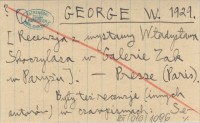 GEORGE W. 1929.
[Recenzja z wystawy Władysława
Skoczylasa w Galerie Zak
w Paryżu]. — Presse (Paris).
Były też recenzje (innych
autorów) w czasopismach: